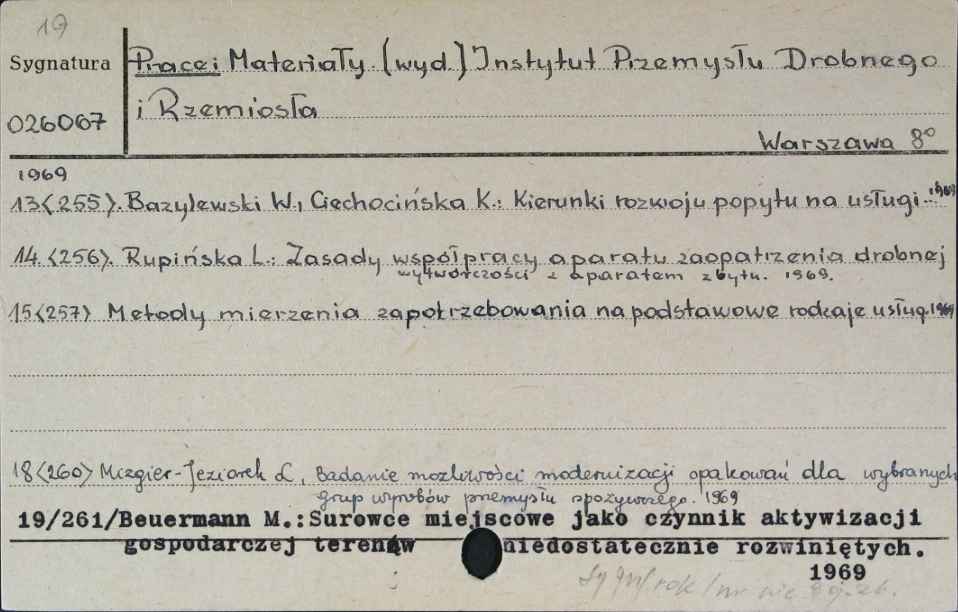 19
Sygnatura Prace i Materiały. (wyd.) Instytut Przemysłu Drobnego
026067 i Rzemiosła
Warszawa 8°
1969
13<255>. Bazylewski W., Ciechocińska K.: Kierunki rozwoju popytu na usługi. 1969
14.<256>. Rupińska L.: Zasady współpracy aparatu zaopatrzenia drobnej
wytwórczości z aparatem zbytu. 1969.
15<257> Metody mierzenia zapotrzebowania na podstawowe rodzaje usług. 1969
18<260> Mizgier-Jeziorek L, Badanie możliwości modernizacji opakowań dla wybranych
grup wyrobów przemysłu spożywczego. 1969
19/261/Beuermann M.:Surowce miejscowe jako czynnik aktywizacji
gospodarczej terenów niedostatecznie rozwiniętych.
1969
rok / nr nie